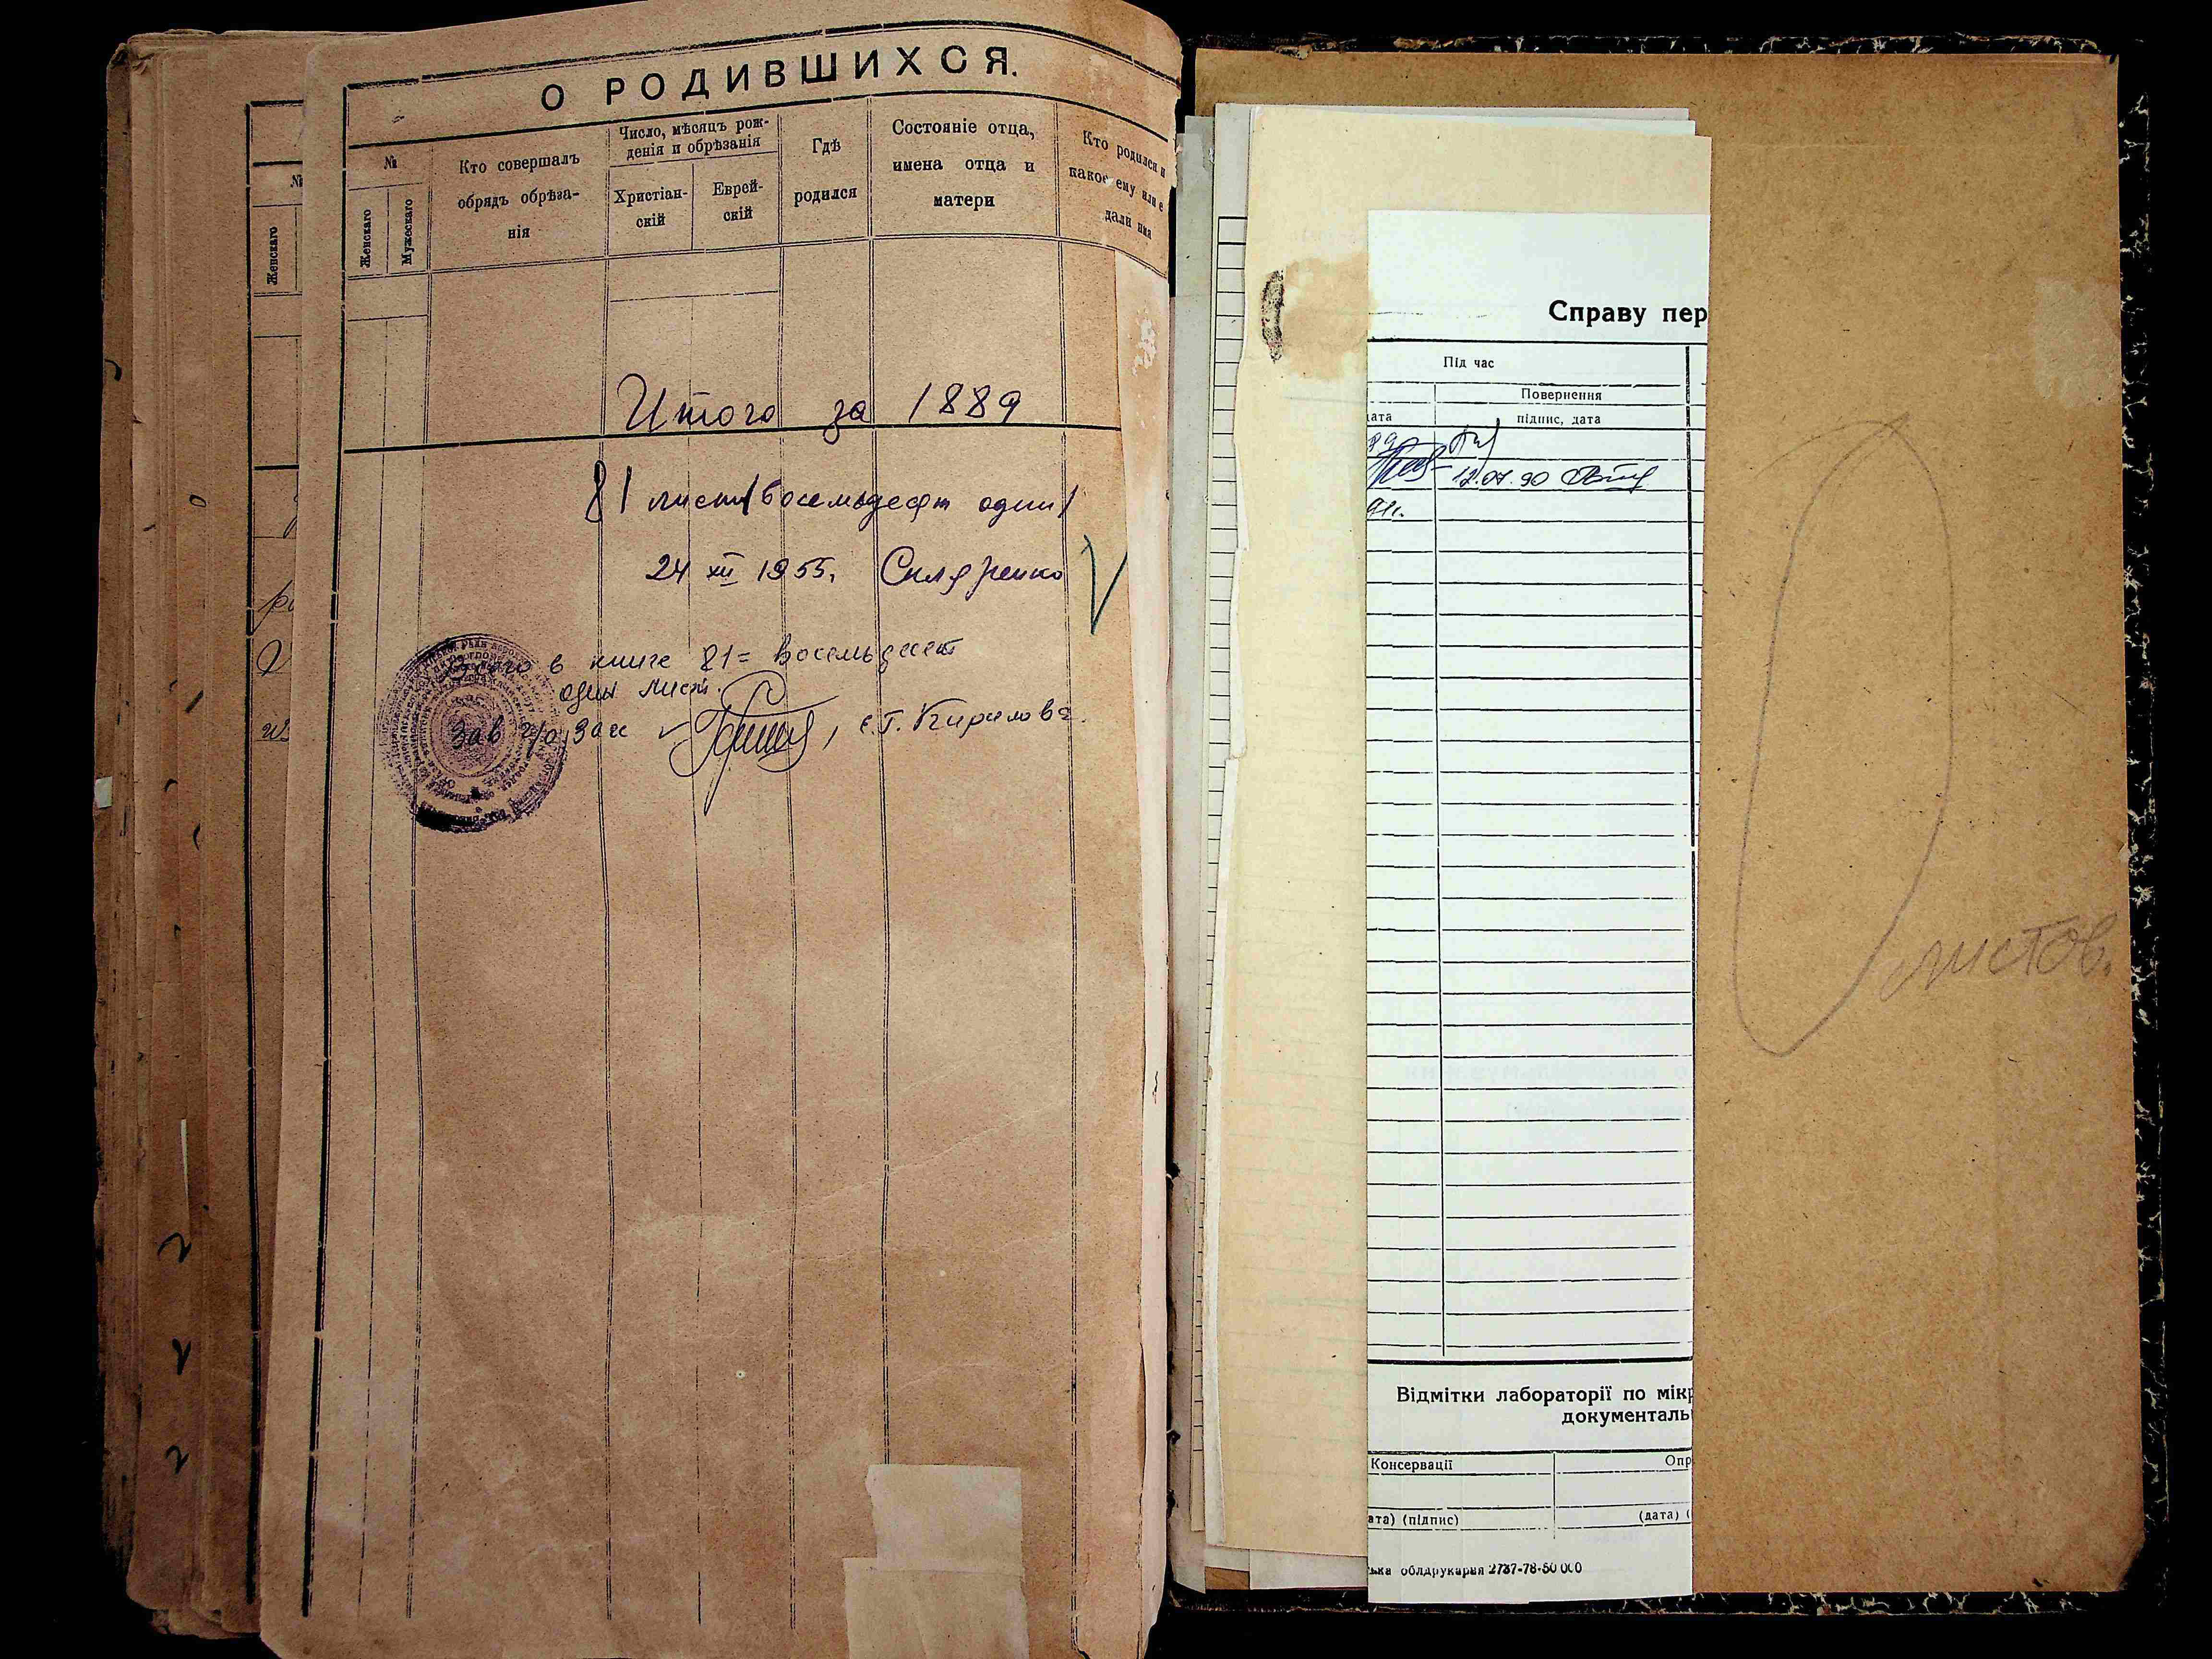 О РОДИВШИХСЯ.
№
Женскаго
Мужескаго
Кто совершалъ
обрядъ обрѣза-
нія
Число, мѣсяцъ рож-
денія и обрѣзанія
Христіан-
скій
Еврей-
скій
Гдѣ
родился
Состояніе отца,
имена отца и
матери
Кто родился и
какое ему или е
дали имя
№
Женскаго
Итого за 1889
81 лист (восемьдесят один)
24 XII 1955, Скляренко
Всего в книге 81= восемьдесят
один лист.
Зав г/о Загс
Е.Г. Кирилова.
Справу пер
Під час
Повернення
дата
підпис, дата
12.07.90
91г.
Відмітки лабораторії по мікр
документаль
Консервації
Опр
ата) (підпис)
(дата) (
ька облдрукарня 2737-78-50 000
листов.